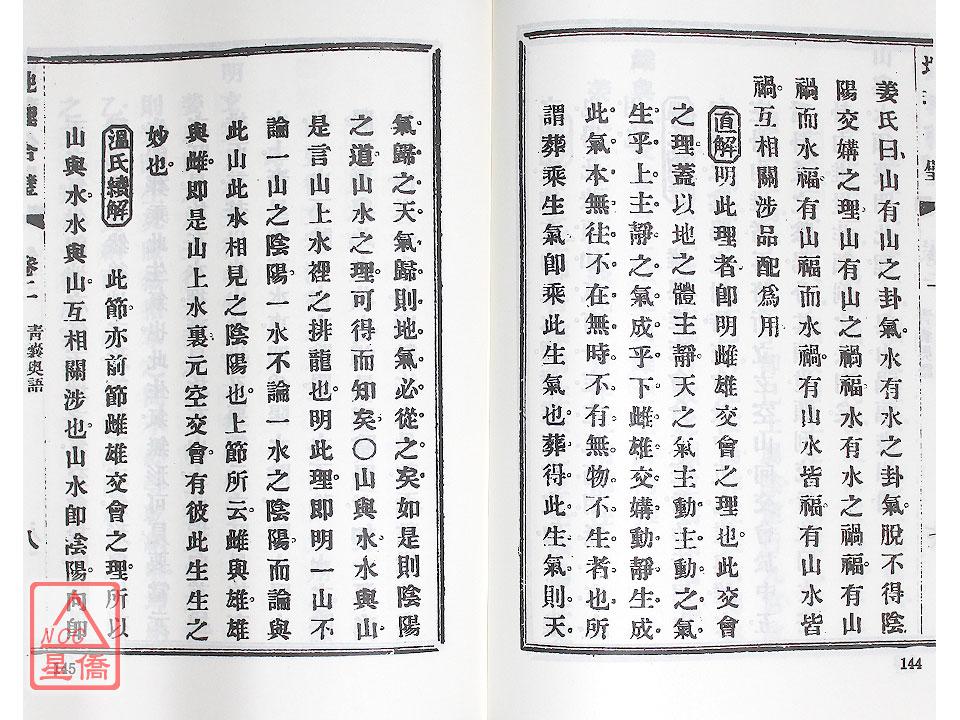 姜氏曰、山有山之卦氣。水有水之卦氣。脫不得陰
陽交媾之理。山有山之禍福。水有水之禍福。有山
禍而水福。有山福而水禍。有山水皆福。有山水皆
禍。互相關涉品配爲用
直解 明此理者。卽明雌雄交會之理也。此交會
之理。蓋以地之體主靜。天之氣主動。主動之氣
生乎上。主靜之氣成乎下。雌雄交媾。動靜生成。
此氣本無往不在。無時不有。無物不生者也。所
謂葬乘生氣。卽乘此生氣也。葬得此生氣。則天
144
氣歸之。天氣歸。則地氣必從之矣。如是則陰陽
之道。山水之理。可得而知矣。〇山與水。水與山。
是言山上水裡之排龍也。明此理。卽明一山不
論一山之陰陽。一水不論一水之陰陽。而論與
此山此水相見之陰陽也。上節所云雌與雄。雄
與雌。卽是山上水裏。元空交會。有彼此生生之
妙也。
溫氏續解 此節亦前節雌雄交會之理。所以
山與水。水與山。互相關涉也。山水卽陰陽。向卽
地理合璧 卷二 青囊奧語 八
145
NCC
星僑